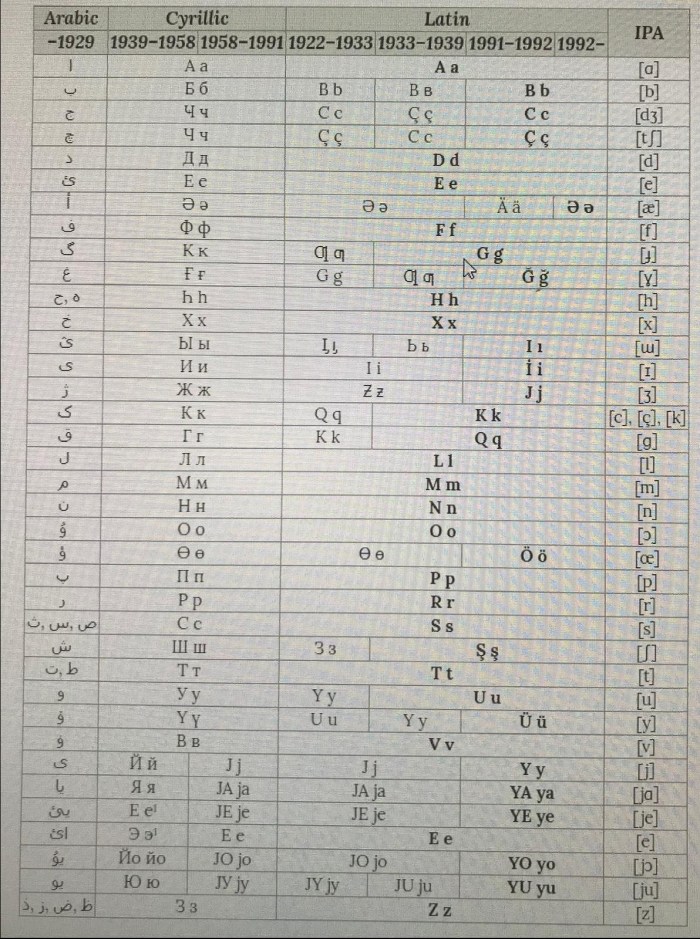 Arabic Cyrillic Latin IPA
–1929 1939–1958 1958–1991 1922–1933 1933–1939 1991–1992 1992–
ا А а A a [ɑ]
ب Б б B b B в B b [b]
ج Ч ч C c Ç ç C c [dʒ]
چ Ч ч Ç ç C c Ç ç [tʃ]
د Д д D d [d]
ئ Е е E e [e]
أ Ә ә Ə ə Ä ä Ə ə [æ]
ف Ф ф F f [f]
گ К к Ƣ ƣ G g [ɟ]
غ Ғ ғ G g Ƣ ƣ Ğ ğ [ɣ]
ح, ه Һ һ H h [h]
خ Х х X x [x]
Ы ы Ь ь I ı [ɯ]
ی И и I i İ i [ɪ]
ژ Ж ж Ƶ ƶ J j [ʒ]
ک К к Q q K k [c], [ç], [k]
ق Г г K k Q q [g]
ل Л л L l [l]
م М м M m [m]
ن Н н N n [n]
О о O o [ɔ]
ؤ Ө ө Ɵ ɵ Ö ö [œ]
پ П п P p [p]
ر Р р R r [r]
ث, س, ص С с S s [s]
ش Ш ш З з Ş ş [ʃ]
ت, ط Т т T t [t]
و У у Y y U u [u]
Ү ү U u Y y Ü ü [y]
В в V v [v]
ی Й й J j J j Y y [j]
یا Я я JA ja JA ja YA ya [jɑ]
یئ Е е¹ JE je JE je YE ye [je]
ائ Э э¹ Е е E e [e]
Йо йо JO jo JO jo YO yo [jɔ]
یو Ю ю JУ jу JY jy JU ju YU yu [ju]
ذ, ز, ض, ظ З з Z z [z]